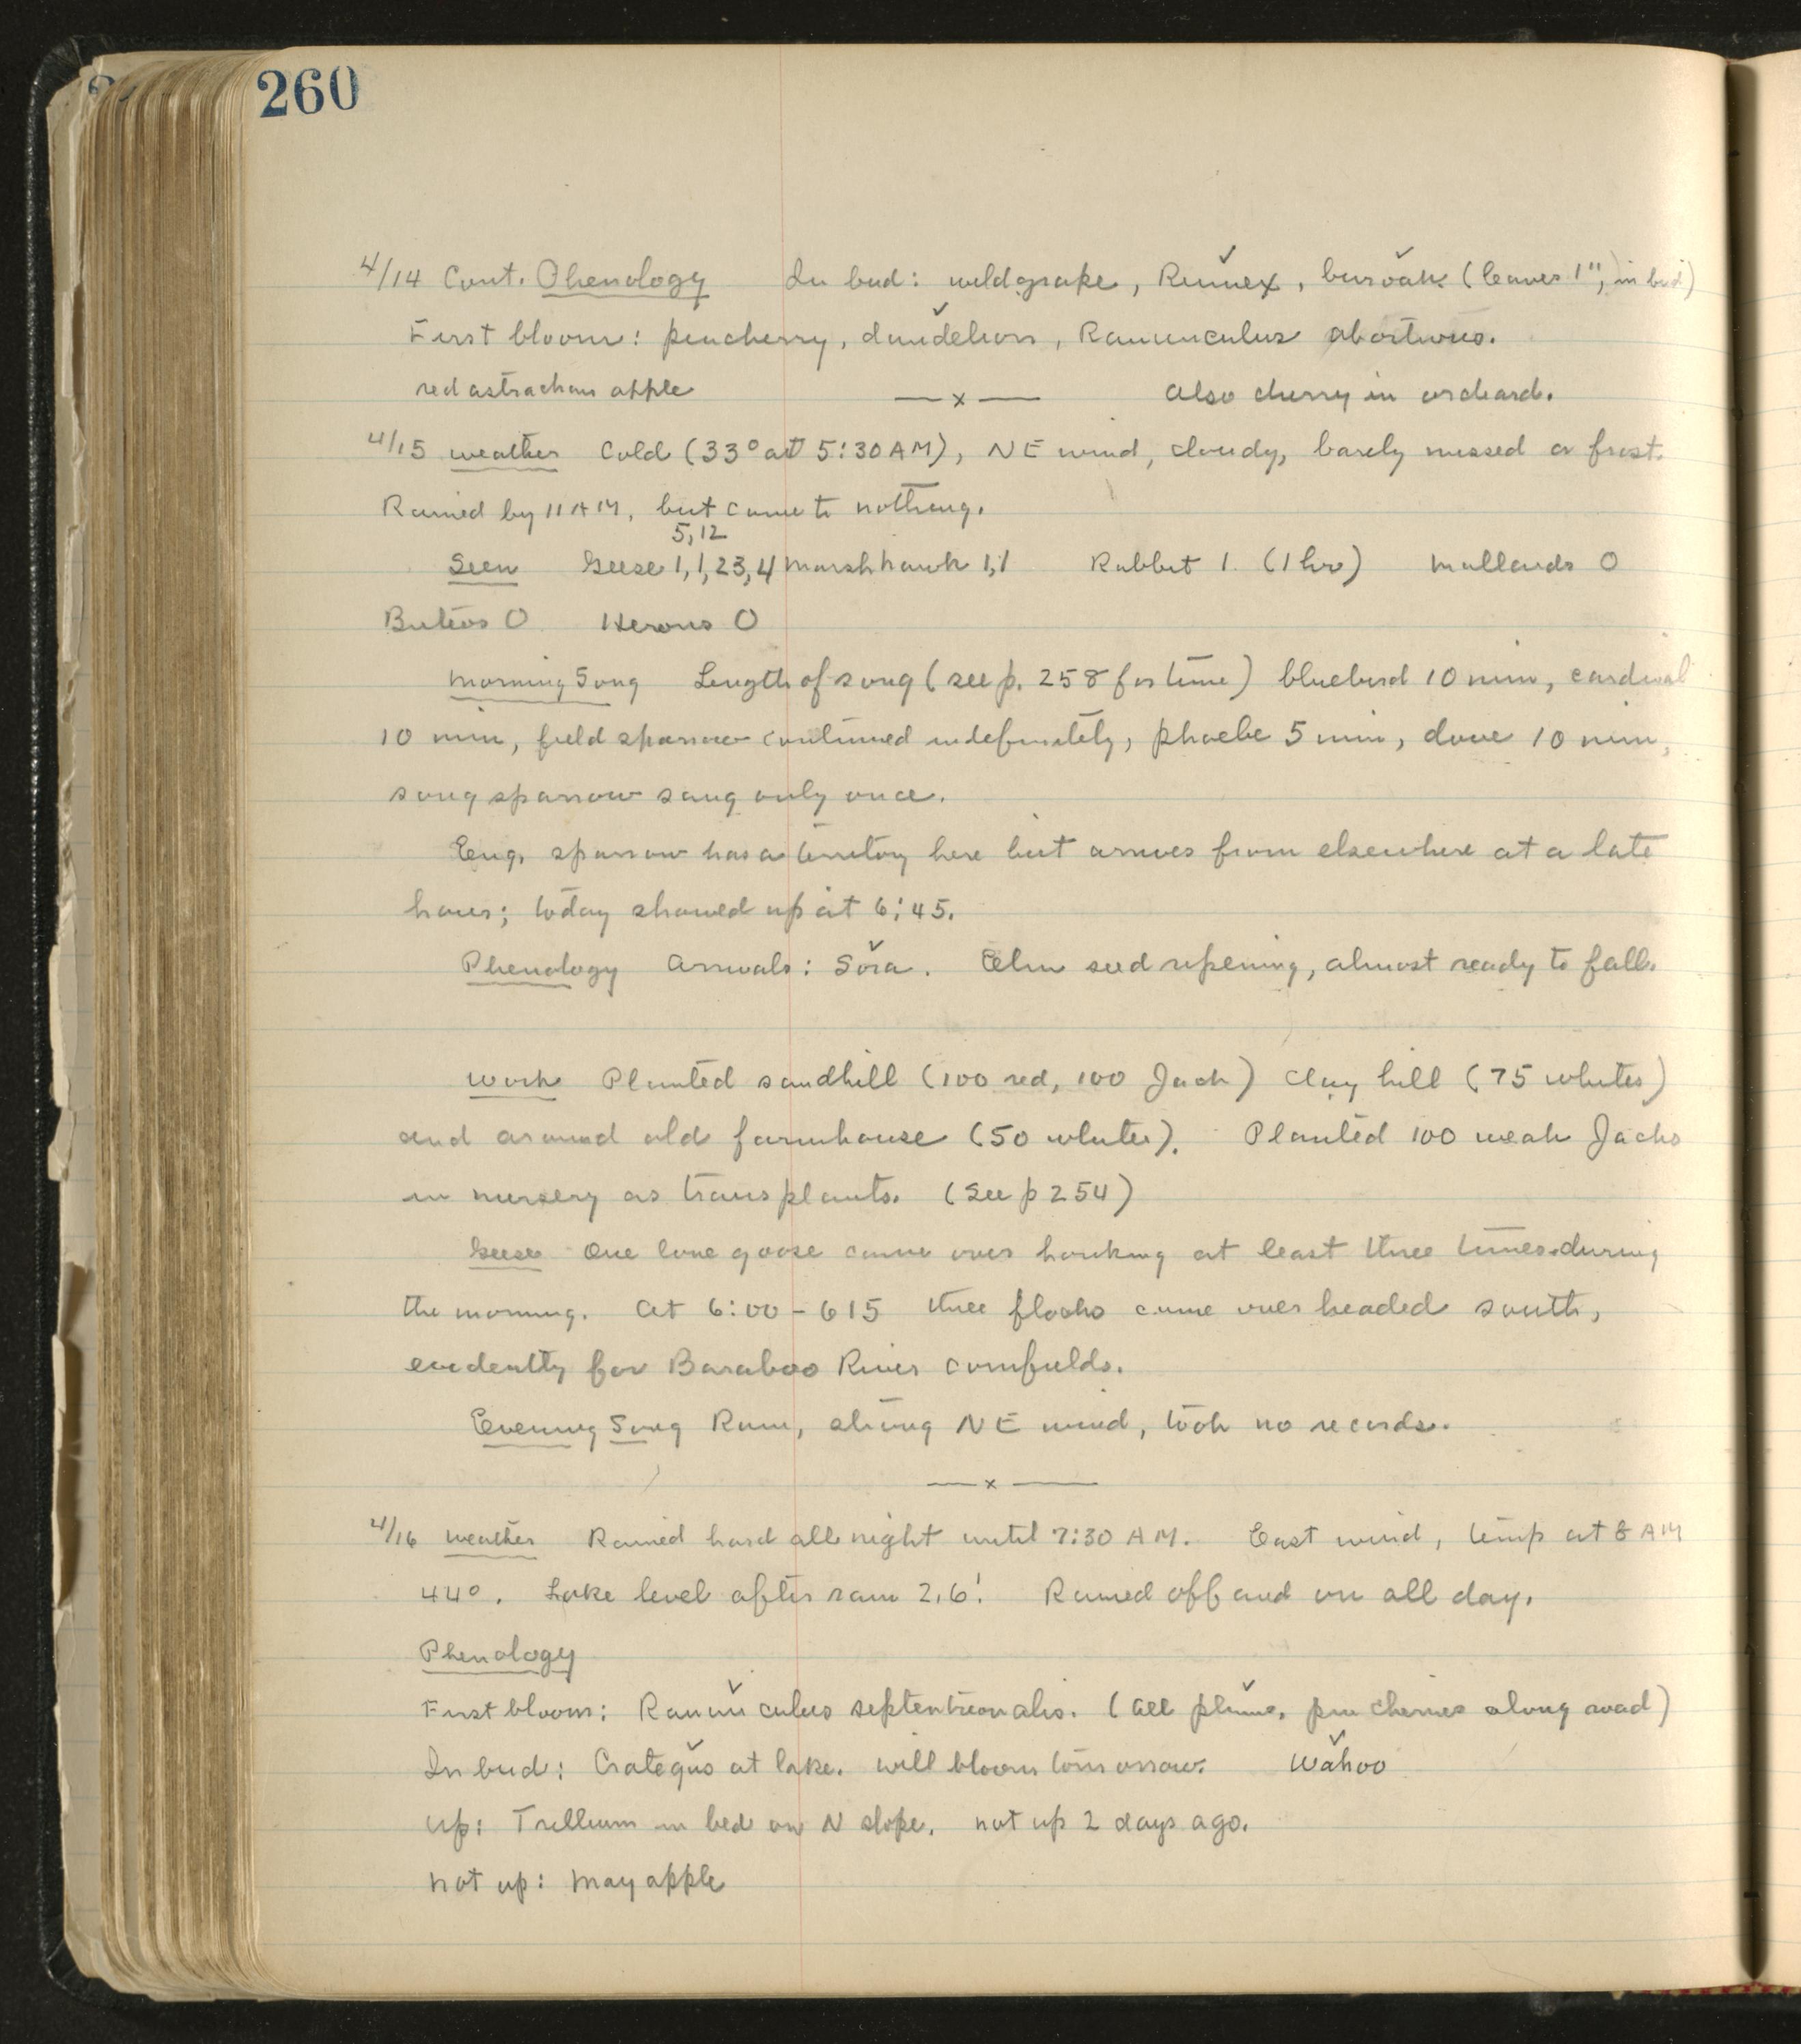 260
4/14 Cont. Phenology In bud: wild grape, Rumex, bur oak (leaves 1", in bud)
First bloom: pincherry, dandelion, Ranunculus abortivus.
red astrachan apple —x— Also cherry in orchard.
4/15 Weather Cold (33° at 5:30 AM), NE wind, cloudy, barely missed a frost.
Rained by 11 AM, but came to nothing.
5, 12
Seen Geese 1, 1, 23, 4 Marsh hawk 1, 1 Rabbit 1 (1 hr) Mallards 0
Buteos 0 Herons 0
Morning Song Length of song (see p. 258 for time) bluebird 10 min, cardinal
10 min, field sparrow continued indefinitely, phoebe 5 min, dove 10 min,
song sparrow sang only once.
Eng. sparrow has a territory here but arrives from elsewhere at a late
hour; today showed up at 6:45.
Phenology Arrivals: Sora. Elm seed ripening, almost ready to fall.
Work Planted sandhill (100 red, 100 Jack) Clay hill (75 whites)
and around old farmhouse (50 whites). Planted 100 weak Jacks
in nursery as transplants. (See p 254)
Geese One lone goose came over honking at least three times during
the morning. At 6:00 - 615 three flocks came over headed south,
evidently for Baraboo River cornfields.
Evening Song Rain, strong NE wind, took no records.
—x—
4/16 Weather Rained hard all night until 7:30 AM. East wind, temp at 8 AM
44°. Lake level after rain 2.6'. Rained off and on all day.
Phenology
First bloom: Ranunculus septentrionalis. (All plums, pin cherries along road)
In bud: Crategus at lake. will bloom tomorrow. Wahoo
Up: Trillium in bed on N slope. not up 2 days ago.
Not up: May apple